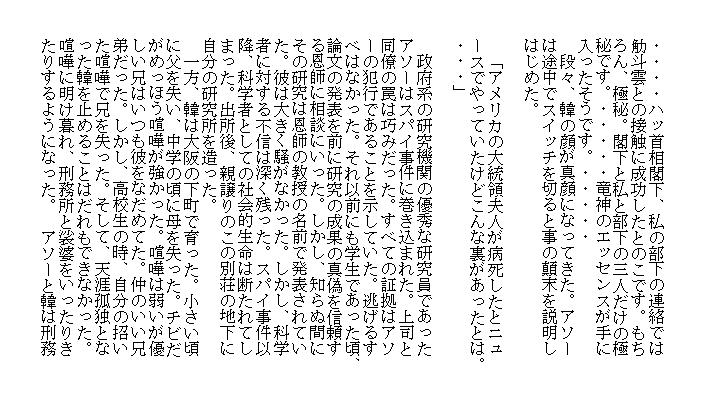 ・・・・ハッ首相閣下、私の部下の連絡では
觔斗雲との接触に成功したとのこです。もち
ろん、極秘。閣下と私と部下の三人だけの極
秘です。・・・・・竜神のエッセンスが手に
入ったそうです。・・・・・
　段々、韓の顔が真顔になってきた。アソー
は途中でスイッチを切ると事の顛末を説明し
はじめた。
「アメリカの大統領夫人が病死したとニュ
ースでやっていたけどこんな裏があったとは。
・・・」
　政府系の研究機関の優秀な研究員であった
アソーはスパイ事件に巻き込まれた。上司と
同僚の罠は巧みだった。すべての証拠はアソ
ーの犯行であることを示していた。逃げるす
べはなかった。それ以前にも学生であった頃、
論文の発表を前に研究の成果の真偽を信頼す
る恩師に相談にいった。しかし、知らぬ間に
その研究は恩師の教授の名前で発表されてい
た。彼は大きく騒がなかった。しかし、科学
者に対する不信は深く残った。スパイ事件以
降、科学者としての社会的生命は断たれてし
まった。出所後、親譲りのこの別荘の地下に
自分の研究所を造った。
　一方、韓は大阪の下町で育った。小さい頃
に父を失い、中学の頃に母を失った。チビだ
がめっぽう喧嘩が強かった。喧嘩は弱いが優
しい兄はいつも彼をなだめてた。仲のいい兄
弟だった。しかし、高校生の時、自分の招い
た喧嘩で兄を失った。そして、天涯孤独とな
った韓を止めることはだれもできなかった。
喧嘩に明け暮れ、刑務所と娑婆をいったりき
たりするようになった。　アソーと韓は刑務